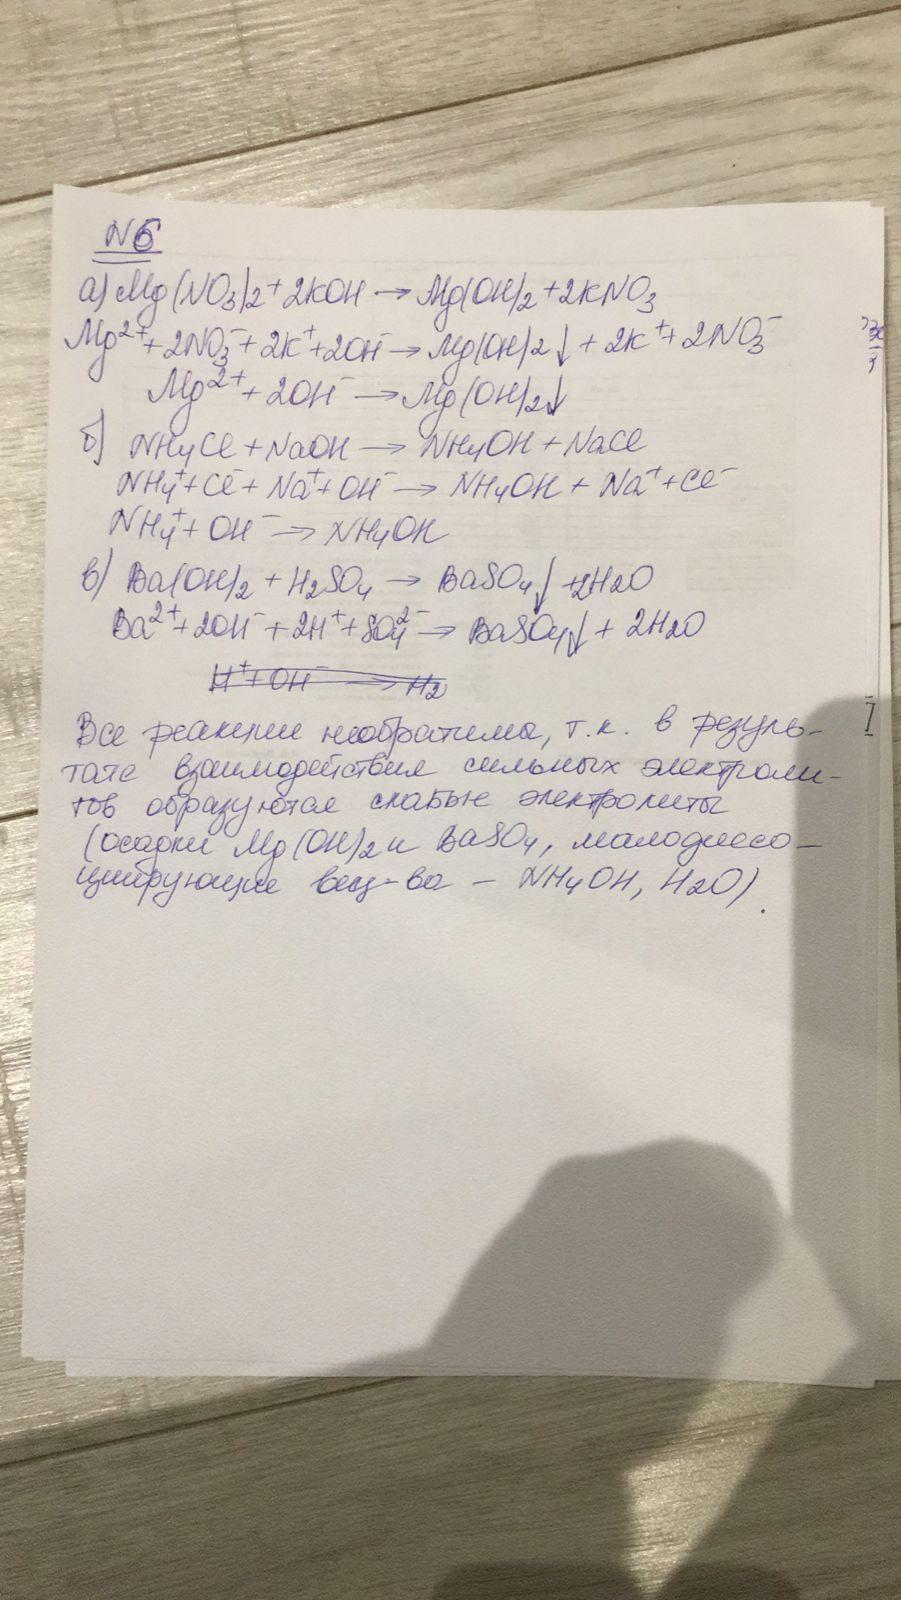 N6
а) Mg(NO3)2 + 2KOH → Mg(OH)2 + 2KNO3
Mg²⁺ + 2NO3⁻ + 2K⁺ + 2OH⁻ → Mg(OH)2↓ + 2K⁺ + 2NO3⁻
Mg²⁺ + 2OH⁻ → Mg(OH)2↓
б) NH4Cl + NaOH → NH4OH + NaCl
NH4⁺ + Cl⁻ + Na⁺ + OH⁻ → NH4OH + Na⁺ + Cl⁻
NH4⁺ + OH⁻ → NH4OH
в) Ba(OH)2 + H2SO4 → BaSO4↓ + 2H2O
Ba²⁺ + 2OH⁻ + 2H⁺ + SO4²⁻ → BaSO4↓ + 2H2O
H⁺ + OH⁻ → H2
Все реакции необратимы, т.к. в резуль-
тате взаимодействия сильных электроли-
тов образуются слабые электролиты
(осадки Mg(OH)2 и BaSO4, малодиссо-
циирующие вещ-ва – NH4OH, H2O).